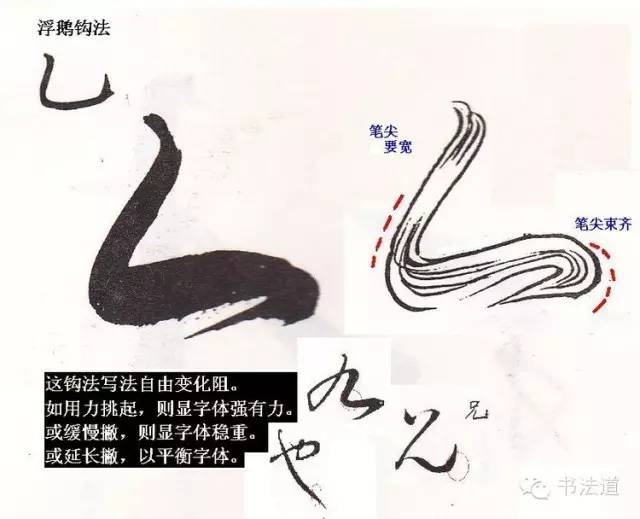 浮鹅钩法
笔尖
要宽
笔尖束齐
这钩法写法自由变化阻。
如用力挑起，则显字体强有力。
或缓慢撇，则显字体稳重。
或延长撇，以平衡字体。
九
也
兄
兄
书法道